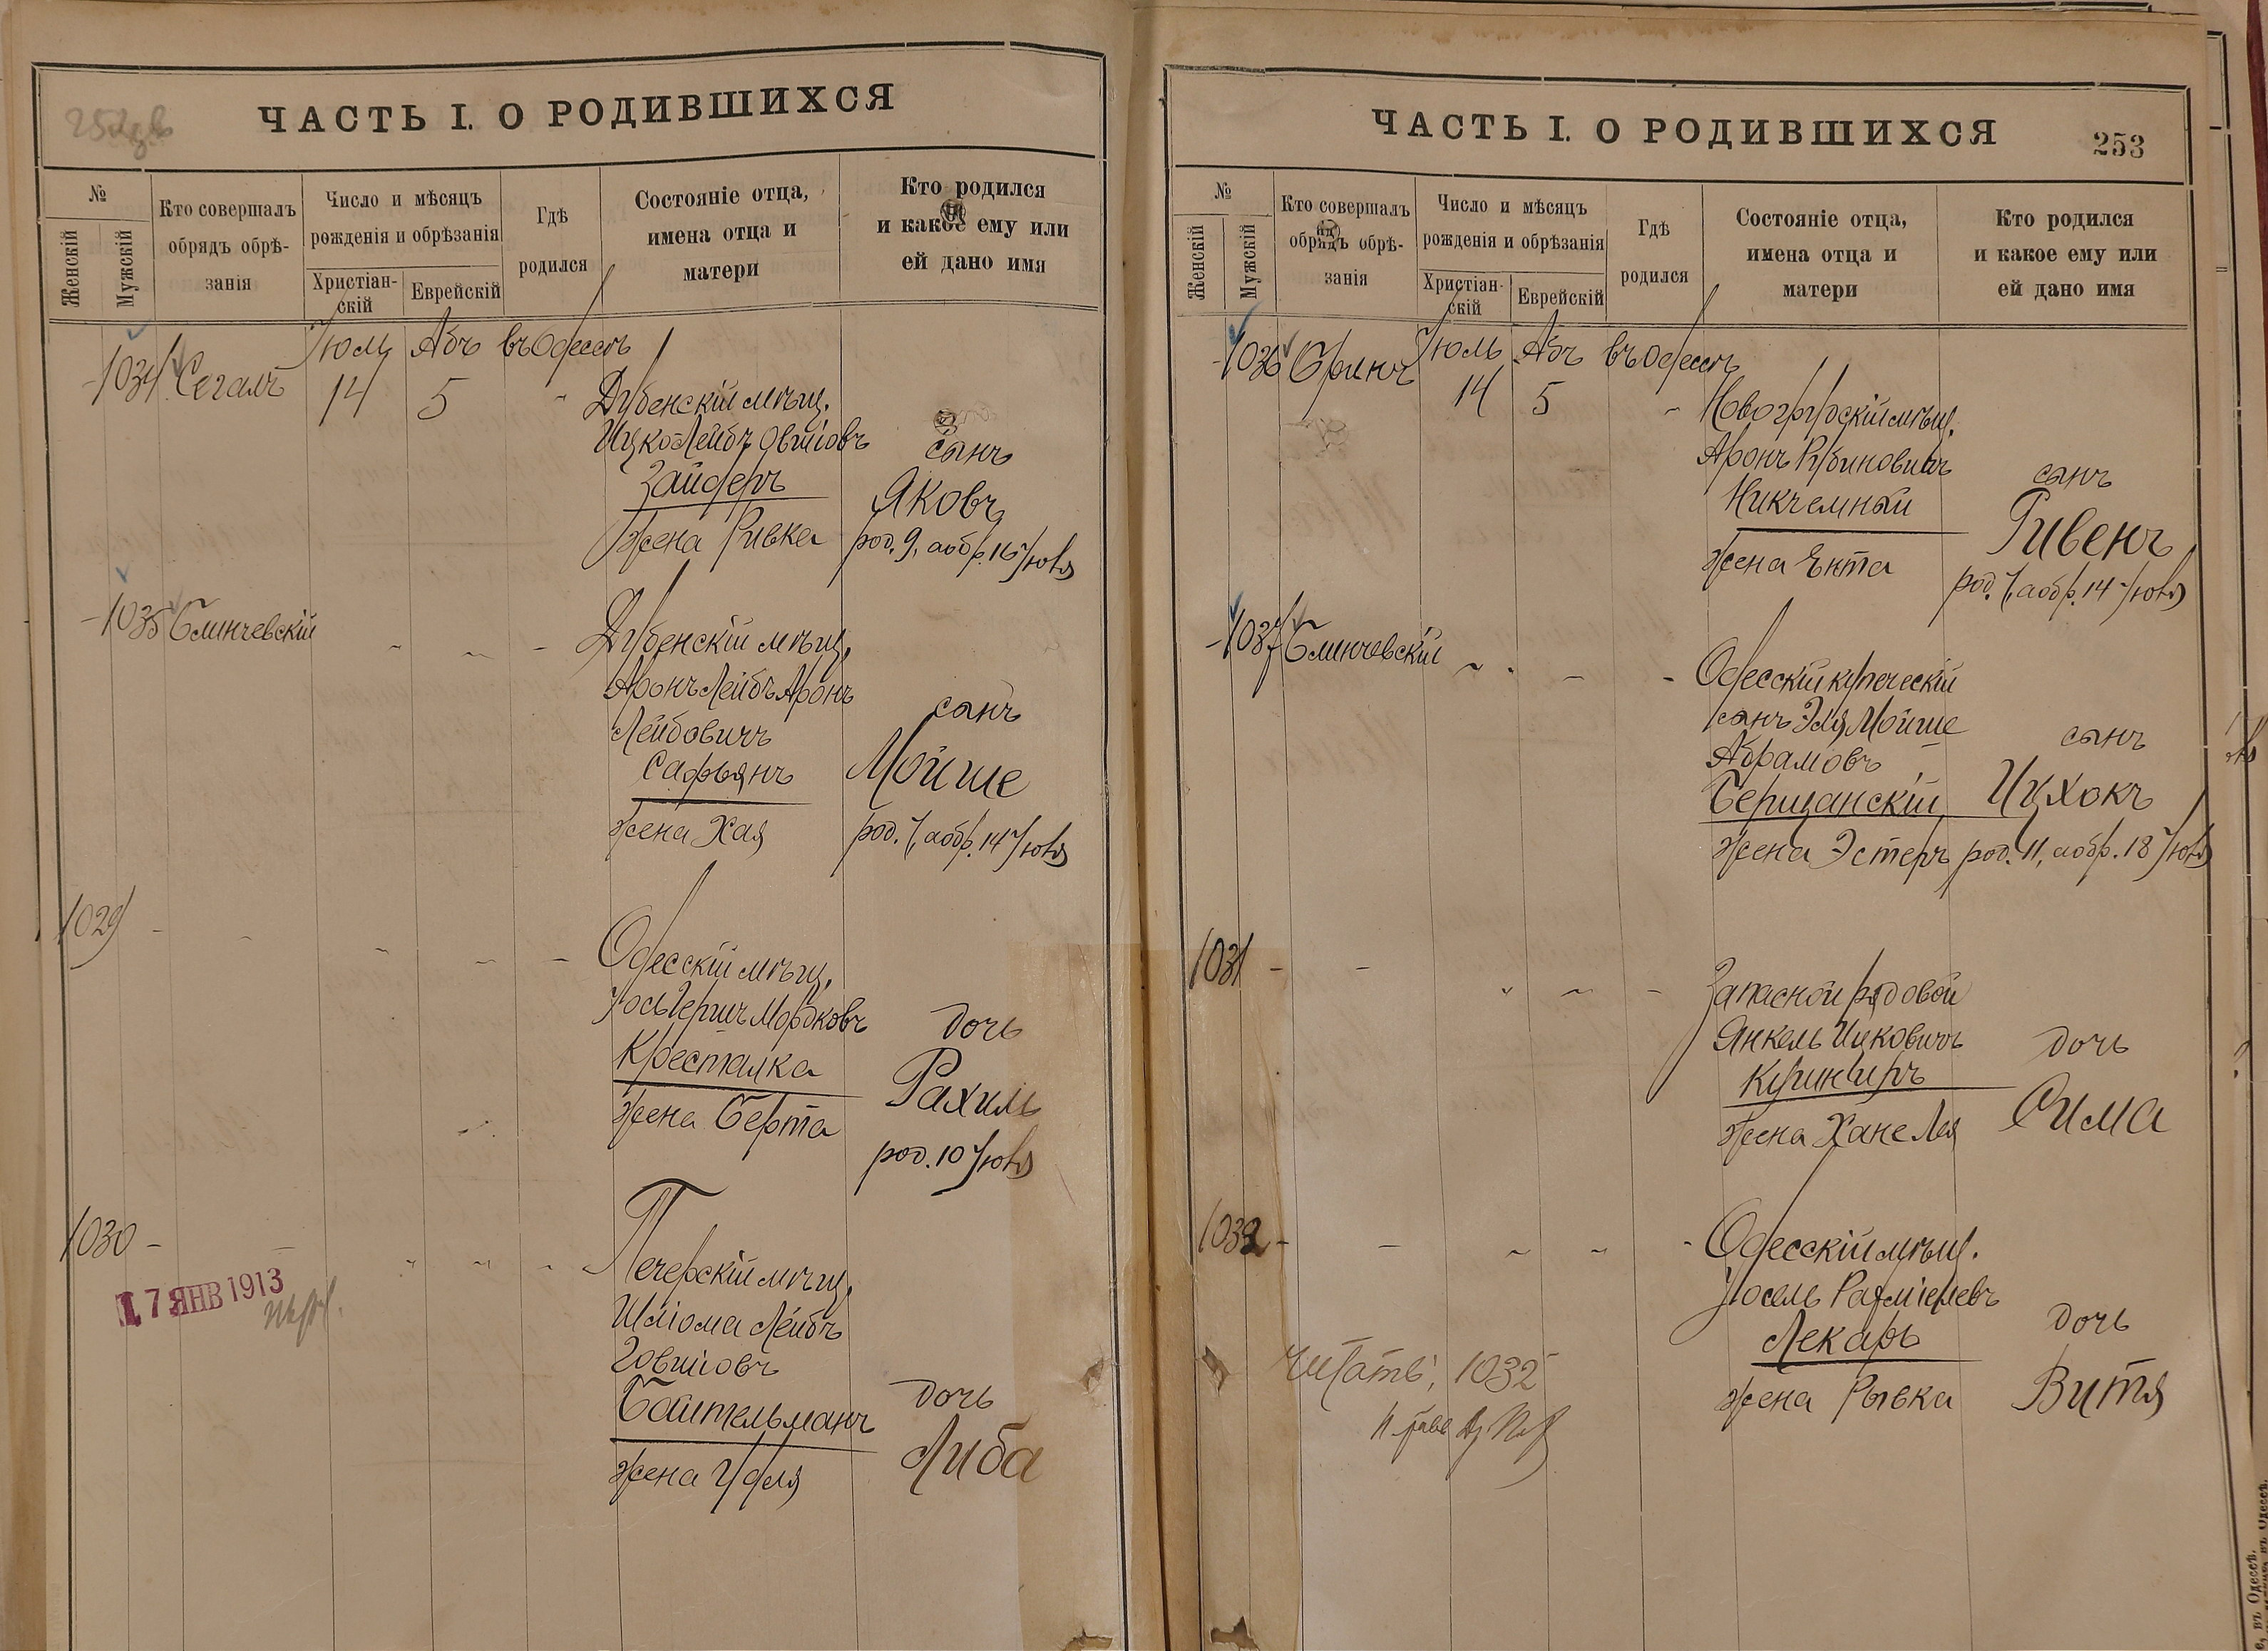 ЧАСТЬ I. О РОДИВШИХСЯ
№
Женскій
Мужскій
Кто совершалъ
обрядъ обрѣ-
занія
Число и мѣсяцъ
рожденія и обрѣзанія
Христіан-
скій
Еврейскій
Гдѣ
родился
Состояніе отца,
имена отца и
матери
Кто родился
и какое ему или
ей дано имя
1034 Сегалъ Іюль Абъ въ Одессѣ
14 5 Дубенскій мѣщ.
Ицко Лейбъ Овшіовъ
Зайдеръ
жена Ривка
сынъ
Яковъ
род. 9, а обр. 16 Іюля
1035 Блинчевскій
Дубенскій мѣщ.
Аронъ Лейбъ Аронъ
Лейбовичъ
Сафьянъ
жена Хая
сынъ
Мойше
род. 7, а обр. 14 Іюля
1029
Одесскій мѣщ.
Іось Гершъ Мордковъ
Кресталка
жена Берта
дочь
Рахиль
род. 10 Іюля
1030
17 ЯНВ 1913
Печерскій мѣщ.
Шліома Лейбъ
Говшіовъ
Байтельманъ
жена Удля
дочь
Либа
ЧАСТЬ I. О РОДИВШИХСЯ
253
№
Женскій
Мужскій
Кто совершалъ
обрядъ обрѣ-
занія
Число и мѣсяцъ
рожденія и обрѣзанія
Христіан-
скій
Еврейскій
Гдѣ
родился
Состояніе отца,
имена отца и
матери
Кто родился
и какое ему или
ей дано имя
1036 Іюль Абъ въ Одессѣ
14 5
Аронъ Рубиновичъ
Никчемный
жена Энта
сынъ
Ривенъ
род. 7, а обр. 14 Іюля
1037 Блинчевскій
Одесскій купеческій
сынъ Эля Мойше
Абрамовъ
Бершанскій
жена Эстеръ
сынъ
Ицхокъ
род. 11, а обр. 18 Іюля
1031
Запасной рядовой
Янкель Ицковичъ
жена Хане Лея
дочь
Сима
1032
Одесскій мѣщ.
Іосель Рахміелевъ
Лекарь
жена Рывка
дочь
Витя
Читать: 1032